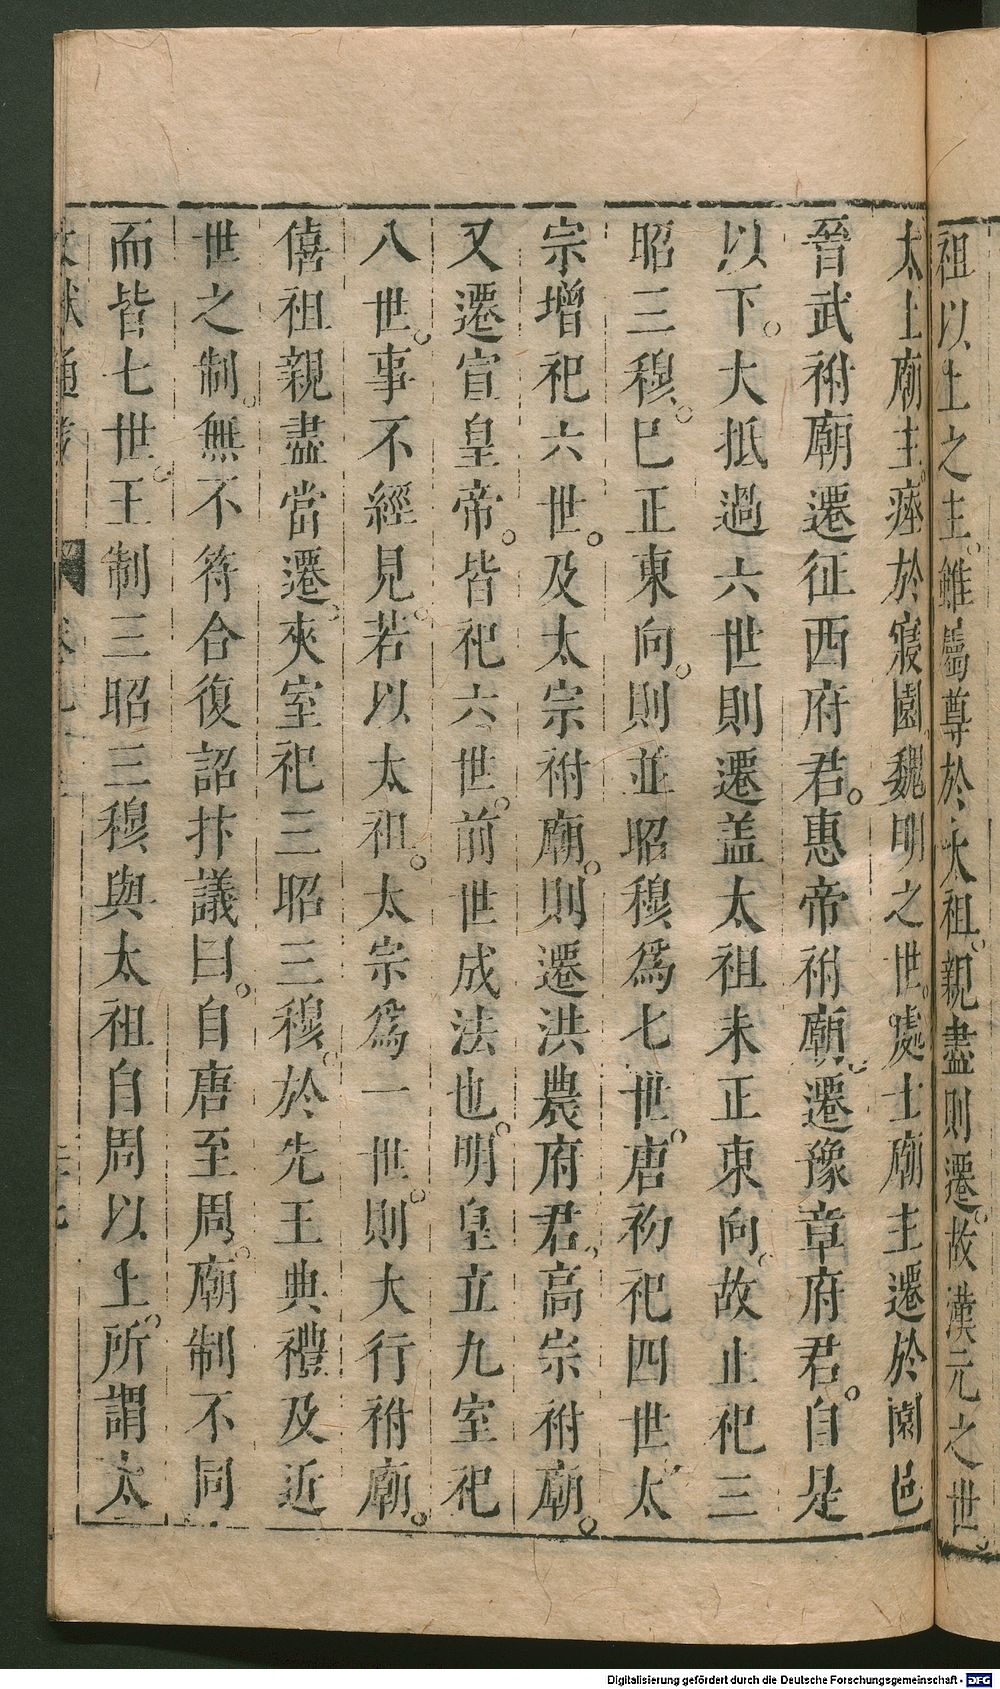 祖以上之主。雖屬尊於太祖。親盡則遷。故漢元之世。
太上廟主。瘞於寢園。魏明之世。處士廟主遷於園邑
晉武祔廟遷征西府君。惠帝祔廟遷豫章府君。自是
以下。大抵過六世則遷。盖太祖未正東向。故止祀三
昭三穆。巳正東向。則並昭穆爲七世。唐初祀四世太
宗增祀六世。及太宗祔廟。則遷洪農府君。高宗祔廟。
又遷宣皇帝。皆祀六世。前世成法也。明皇立九室祀
八世。事不經見。若以太祖。太宗爲一世。則大行祔廟。
僖祖親盡當遷。夾室祀三昭三穆。於先王典禮及近
世之制。無不符合復詔抃議曰。自唐至周。廟制不同
而皆七世。王制三昭三穆與太祖自周以上。所謂太
文獻通考
Digitalisierung gefördert durch die Deutsche Forschungsgemeinschaft - DFG